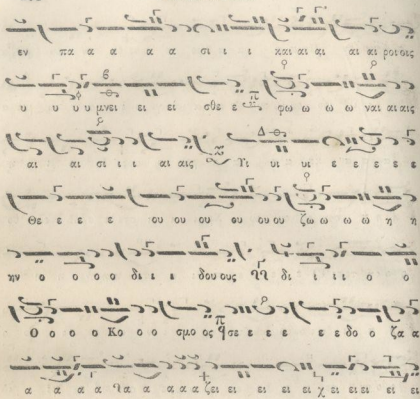 εν πα α α α α σι ι ι και αι αι αι αι ροι οις
υ υ υ υ μνει ει ει σθε ε φω ω ω ω ναι αι αις
αι αι σι ι ι αι αις Υι υι υι ε ε ε ε ε ε
Θε ε ε ε ου ου ου ου ου ου ζω ω ω ω η η
ην ο ο ο ο δι ι ι δου ους δι ι ι ι ο ο
Ο ο ο ο Κο ο ο σμο ος σε ε ε ε ε ε δο ο ζα α
α α α α α α α ζει ει ει ει ει ει χ ει ει ει ει ει